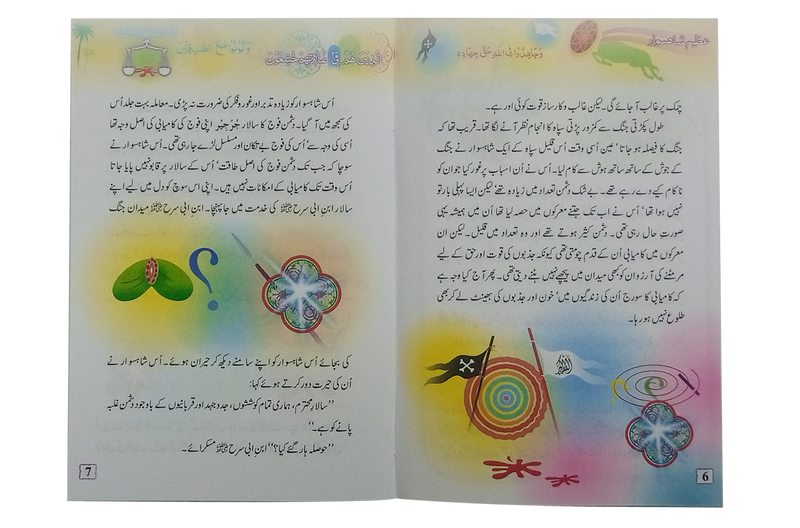 عظیم شاہسوار
وَجَاهِدُوا فِي اللهِ حَقَّ جِهَادِهِ
چمک پر غالب آ جائے گی۔ لیکن غالب و کارساز قوت کوئی اور ہے۔
طول پکڑتی جنگ سے کمزور پڑتی سپاہ کا انجام نظر آنے لگا تھا۔ قریب تھا کہ
جنگ کا فیصلہ ہو جاتا‘ عین اُسی وقت اُس قلیل سپاہ کے ایک شاہسوار نے جنگ
کے جوش کے ساتھ ساتھ ہوش سے کام لیا۔ اُس نے اُن اسباب پر غور کیا جو ان کو
ناکام کیے دے رہے تھے۔ بے شک دشمن تعداد میں زیادہ تھے‘ لیکن ایسا پہلی بار تو
نہیں ہوا تھا‘ اُس نے اب تک جتنے معرکوں میں حصہ لیا تھا اُن میں ہمیشہ یہی
صورتِ حال رہی تھی۔ دشمن کثیر ہوتے تھے اور وہ تعداد میں قلیل۔ لیکن ان
معرکوں میں کامیابی اُن کے قدم چومتی تھی کیونکہ جذبوں کی قوت اور حق کے لیے
مر مٹنے کی آرزو ان کو کبھی میدان میں پیچھے نہیں ہٹنے دیتی تھی۔ پھر آج کیا وجہ ہے
کہ کامیابی کا سورج اُن کی زندگیوں میں‘ خون اور جذبوں کی بھینٹ لے کر بھی
طلوع نہیں ہو رہا۔
6
الَّذِينَ هُمْ فِي صَلَاتِهِمْ خَاشِعُونَ
وَكُونُوا مَعَ الصَّادِقِينَ
اُس شاہسوار کو زیادہ تدبر اور غور و فکر کی ضرورت نہ پڑی۔ معاملہ بہت جلد اُس
کی سمجھ میں آ گیا۔ دشمن فوج کا سالار جُرْجِیْر اپنی فوج کی کامیابی کی اصل وجہ تھا
اسی کی وجہ سے‘ اُس کی فوج بے تکان اور مسلسل لڑے جا رہی تھی۔ اس شاہسوار نے
سوچا کہ جب تک دشمن فوج کی اصل طاقت‘ اُس کے سالار پر قابو نہیں پایا جاتا
اُس وقت تک کامیابی کے امکانات نہیں ہیں۔ اپنی اس سوچ کو دل میں لیے اپنے
سالار ابن ابی سرح ؓ کی خدمت میں جا پہنچا۔ ابنِ ابی سرح ؓ میدانِ جنگ
؟
کی بجائے اُس شاہسوار کو اپنے سامنے دیکھ کر حیران ہوئے۔ اُس شاہسوار نے
اُن کی حیرت دور کرتے ہوئے کہا:
’’سالارِ محترم‘ ہماری تمام کوششوں‘ جدوجہد اور قربانیوں کے باوجود دشمن غلبہ
پانے کو ہے۔‘‘
’’حوصلہ ہار گئے کیا؟‘‘ ابنِ ابی سرح ؓ مسکرائے۔
7